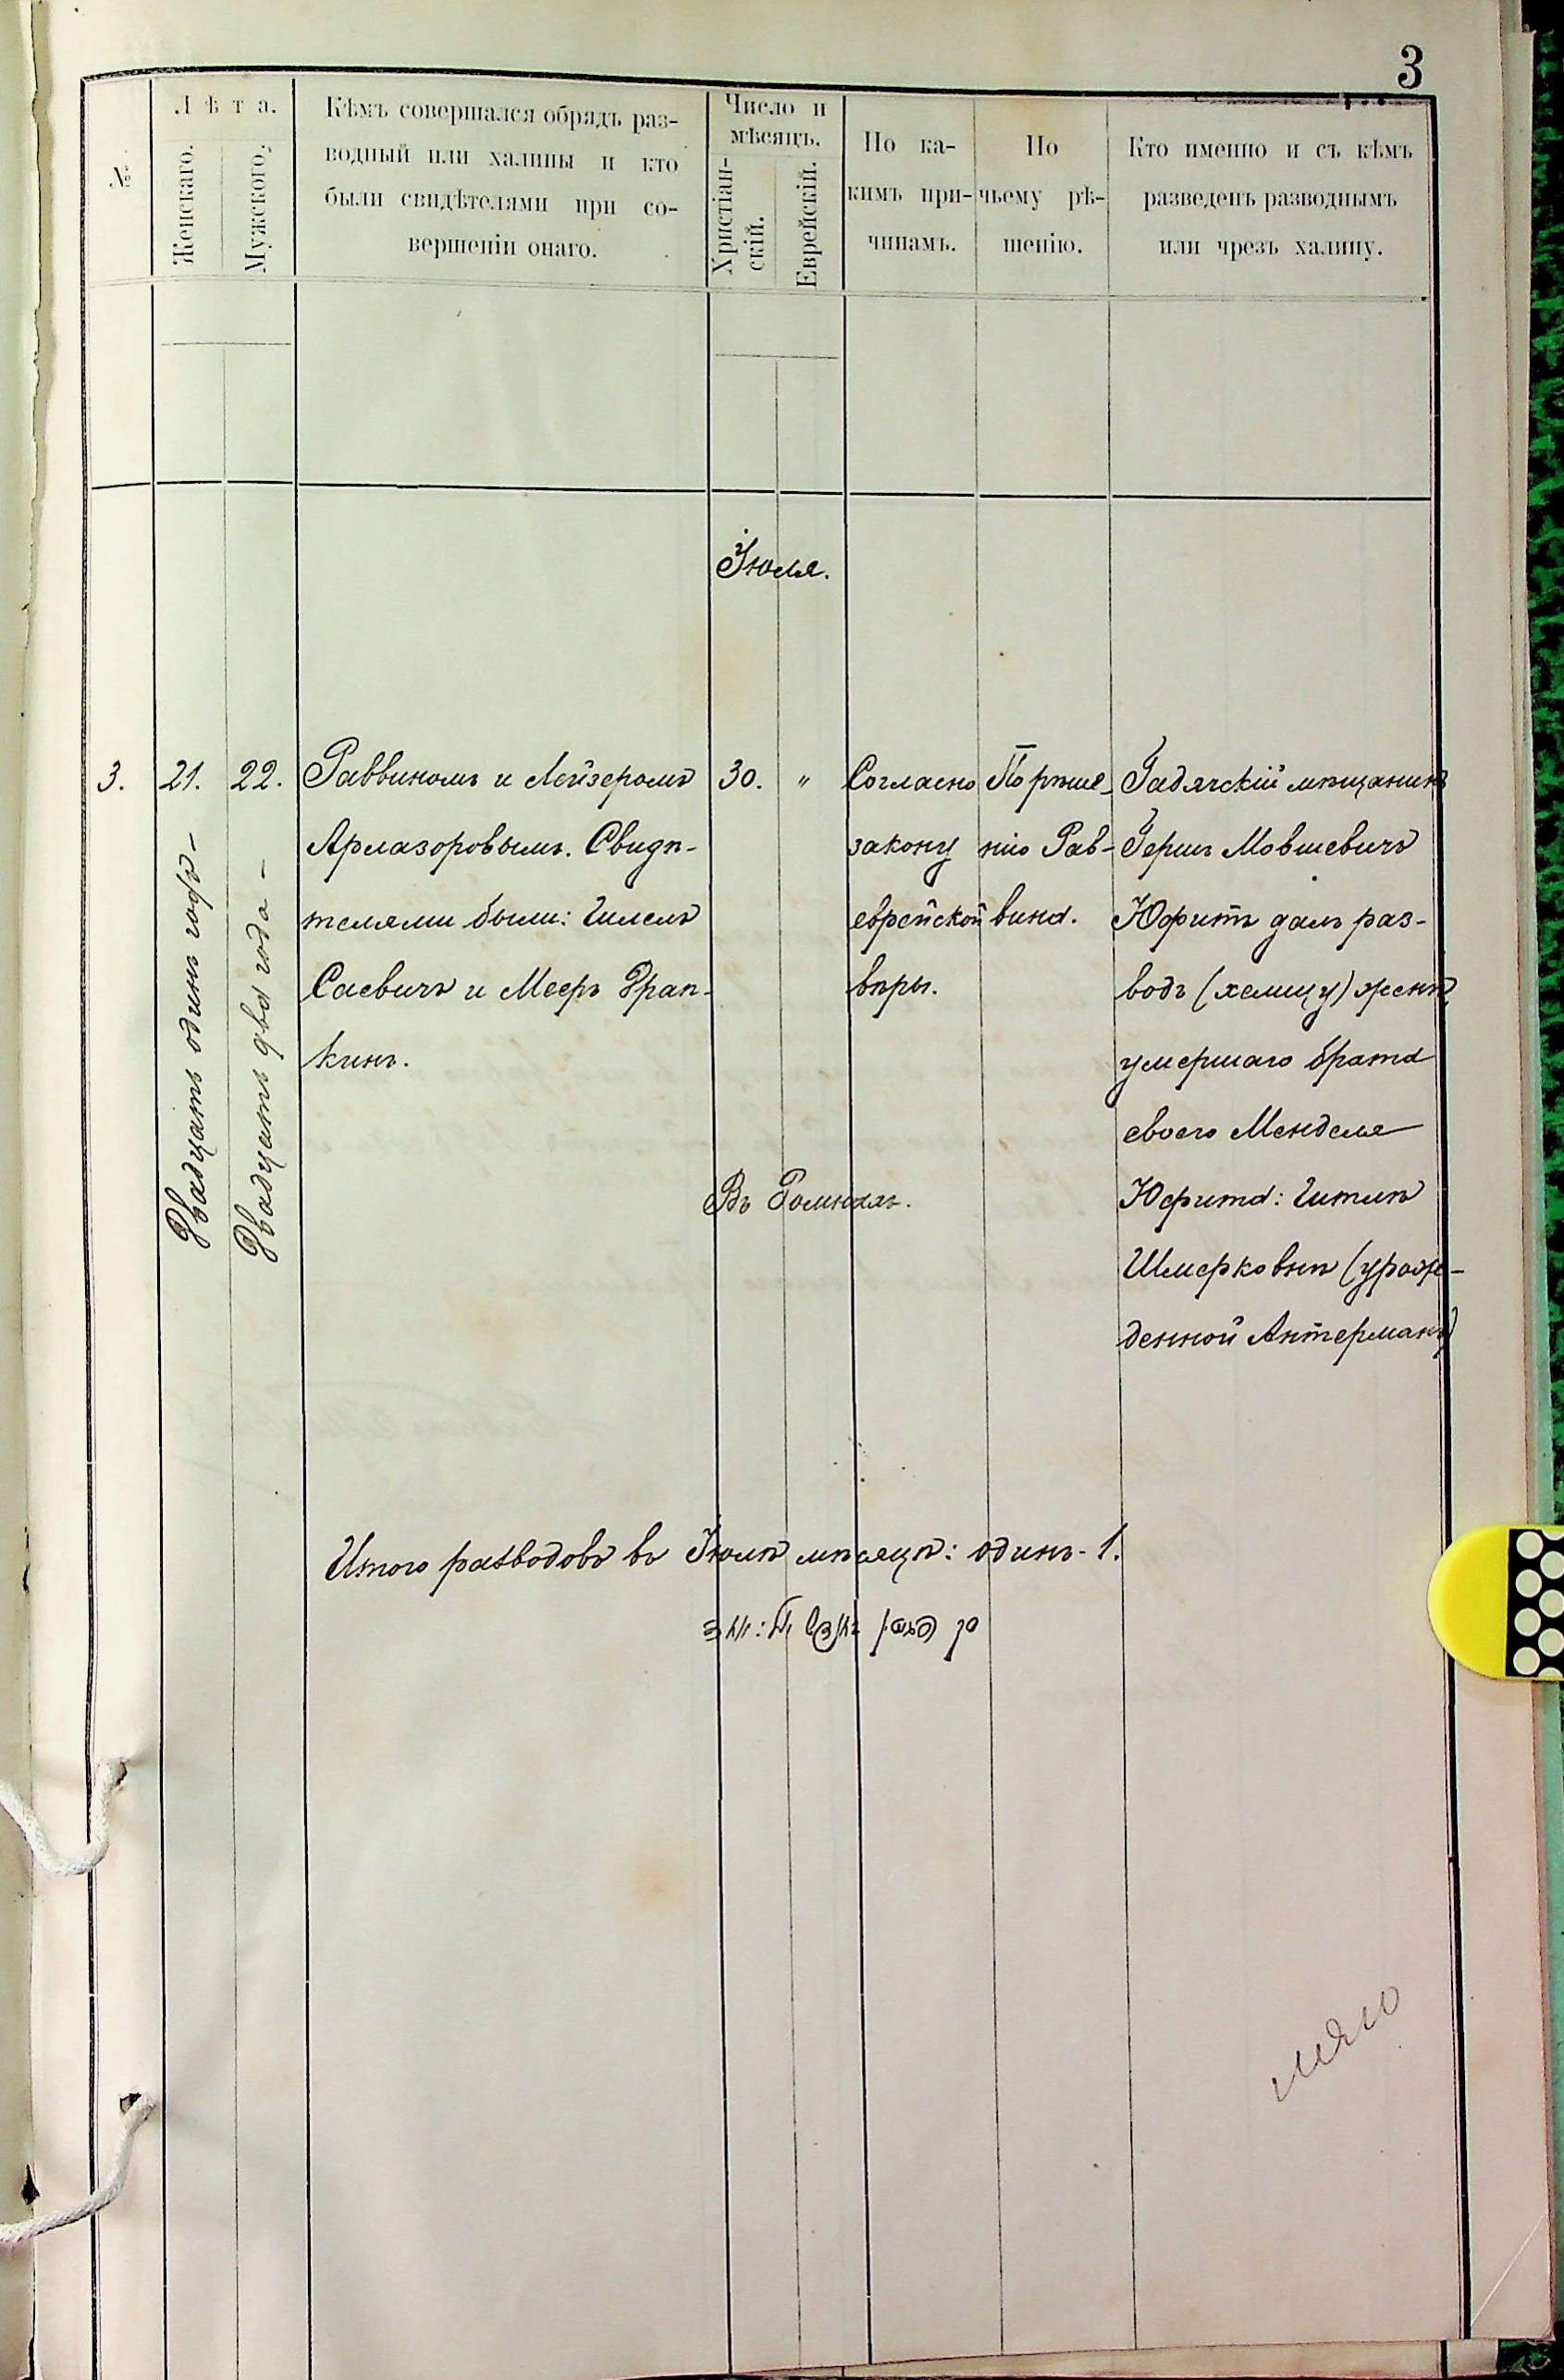 3
№
Лѣта.
Женскаго.
Мужского.
Кѣмъ совершался обрядъ раз-
водный или халицы и кто
были свидѣтелями при со-
вершеніи онаго.
Число и
мѣсяцъ.
Христіан-
скій.
Еврейскій.
По ка-
кимъ при-
чинамъ.
По
чьему рѣ-
шенію.
Кто именно и съ кѣмъ
разведенъ разводнымъ
или чрезъ халицу.
Іюля.
3.
21.
Двадцать одинъ годъ-
22.
Двадцать два года -
Раввиномъ и Лейзеромъ
Армазоровымъ. Свидѣ-
телями были: Гилелъ
Саевичъ и Мееръ Фрап-
кинъ.
30.
"
Согласно
закону
еврейской
вѣры.
По рѣше-
нію Рав-
вина.
Гадячскій мѣщанинъ
Гершъ Мовшевичъ
Юфитъ далъ раз-
водъ (халицу) женѣ
умершаго брата
своего Менделя
Юфита: Гитлѣ
Шмерковнѣ (урож-
денной Антерманъ)
Въ Ромнахъ.
Итого разводовъ въ Іюлѣ мѣсяцѣ: одинъ - 1.